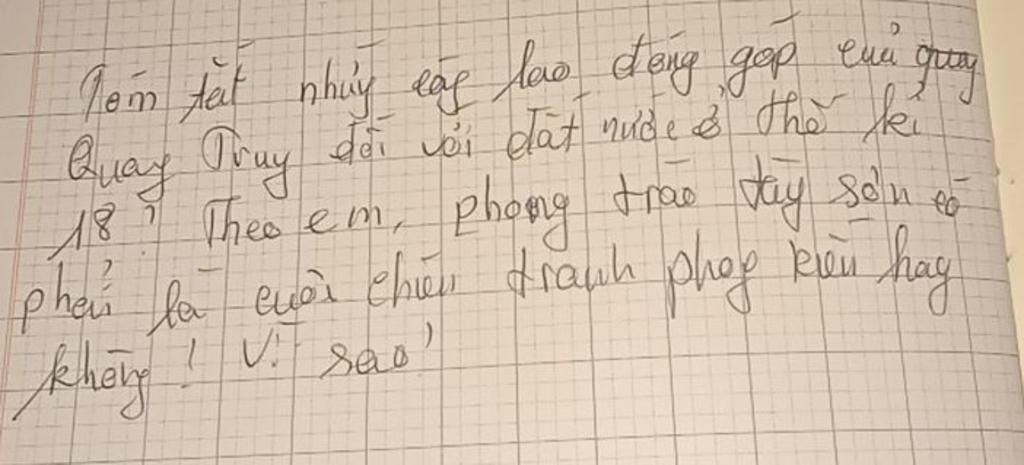 Tóm tắt những công lao đóng góp của quang
Quang Trung đối với đất nước ở thế kỉ
18? Theo em, phong trào tây sơn có
phải là cuộc chiến tranh phong kiến hay
không! Vì sao?